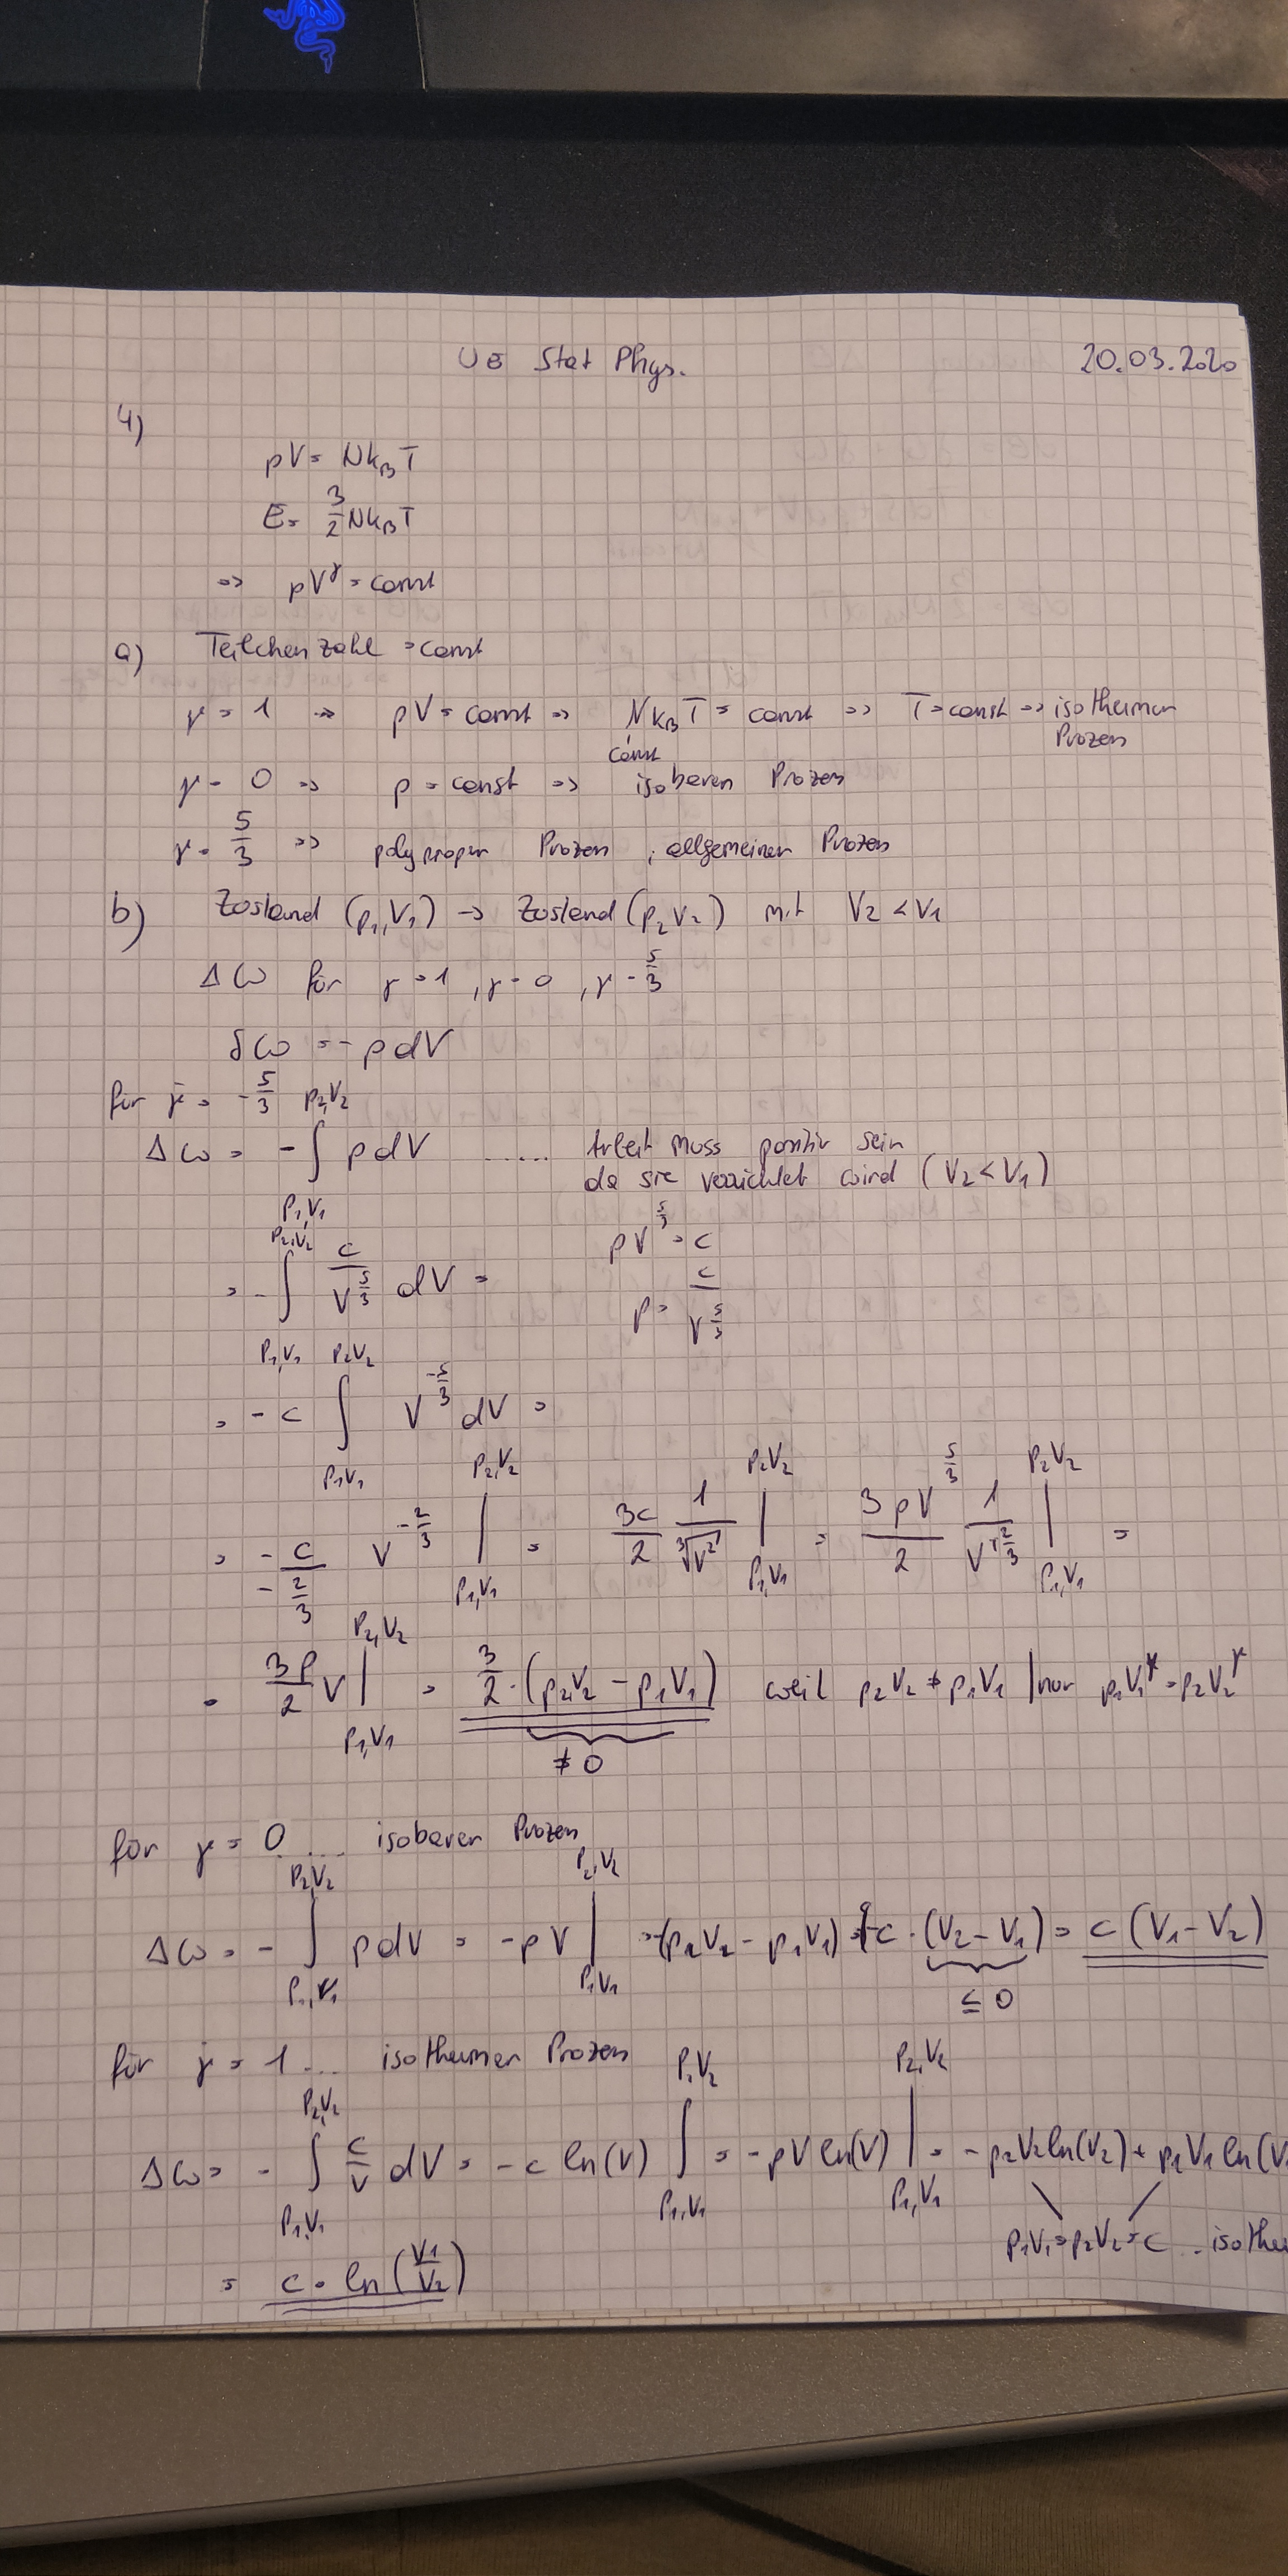 UE Stat Phys. 20.03.2020
4)
pV = Nk_B T
E = 3/2 Nk_B T
=> pV^γ = const
a) Teilchenzahl = const
γ = 1 => pV = const => Nk_B T = const => T = const => isothermer Prozess
const
γ = 0 => p = const => isobaren Prozess
γ = 5/3 => Prozess, allgemeiner Prozess
b) Zustand (p₁,V₁) -> Zustand (p₂V₂) mit V₂ < V₁
Δω für γ = 1, γ = 0, γ = 5/3
δω = -p dV
für γ = 5/3
Δω = -∫_{P₁,V₁}^{P₂,V₂} p dV ..... Arbeit muss positiv sein
da sie verrichtet wird (V₂ < V₁)
= -∫_{P₁,V₁}^{P₂,V₂} c/V^{5/3} dV = pV^{5/3} = c
p = c/V^{5/3}
= -c ∫_{P₁V₁}^{P₂V₂} V^{-5/3} dV =
= -c/(-2/3) V^{-2/3} |_{P₁,V₁}^{P₂,V₂} = 3c/2 1/∛V² |_{P₁,V₁}^{P₂V₂} = 3pV^{5/3}/2 1/V^{2/3} |_{P₁,V₁}^{P₂V₂} =
= 3p/2 V |_{P₁,V₁}^{P₂,V₂} = 3/2 · (p₂V₂ - p₁V₁) weil p₂V₂ ≠ p₁V₁ | nur p₁V₁^γ = p₂V₂^γ
≠ 0
für γ = 0 .... isobarer Prozess
Δω = -∫_{P₁,V₁}^{P₂V₂} p dV = -pV |_{P₁V₁}^{P₂,V₂} = -(p₂V₂ - p₁V₁) = -c · (V₂ - V₁) = c (V₁ - V₂)
≤ 0
für γ = 1 ... isothermer Prozess
Δω = -∫_{P₁,V₁}^{P₂V₂} c/V dV = -c ln(V) ∫_{P₁,V₁}^{P₂V₂} = -pV ln(V) |_{P₁,V₁}^{P₂,V₂} = -p₂V₂ ln(V₂) + p₁V₁ ln(V
p₁V₁ = p₂V₂ = c .. isothe
= c · ln(V₁/V₂)